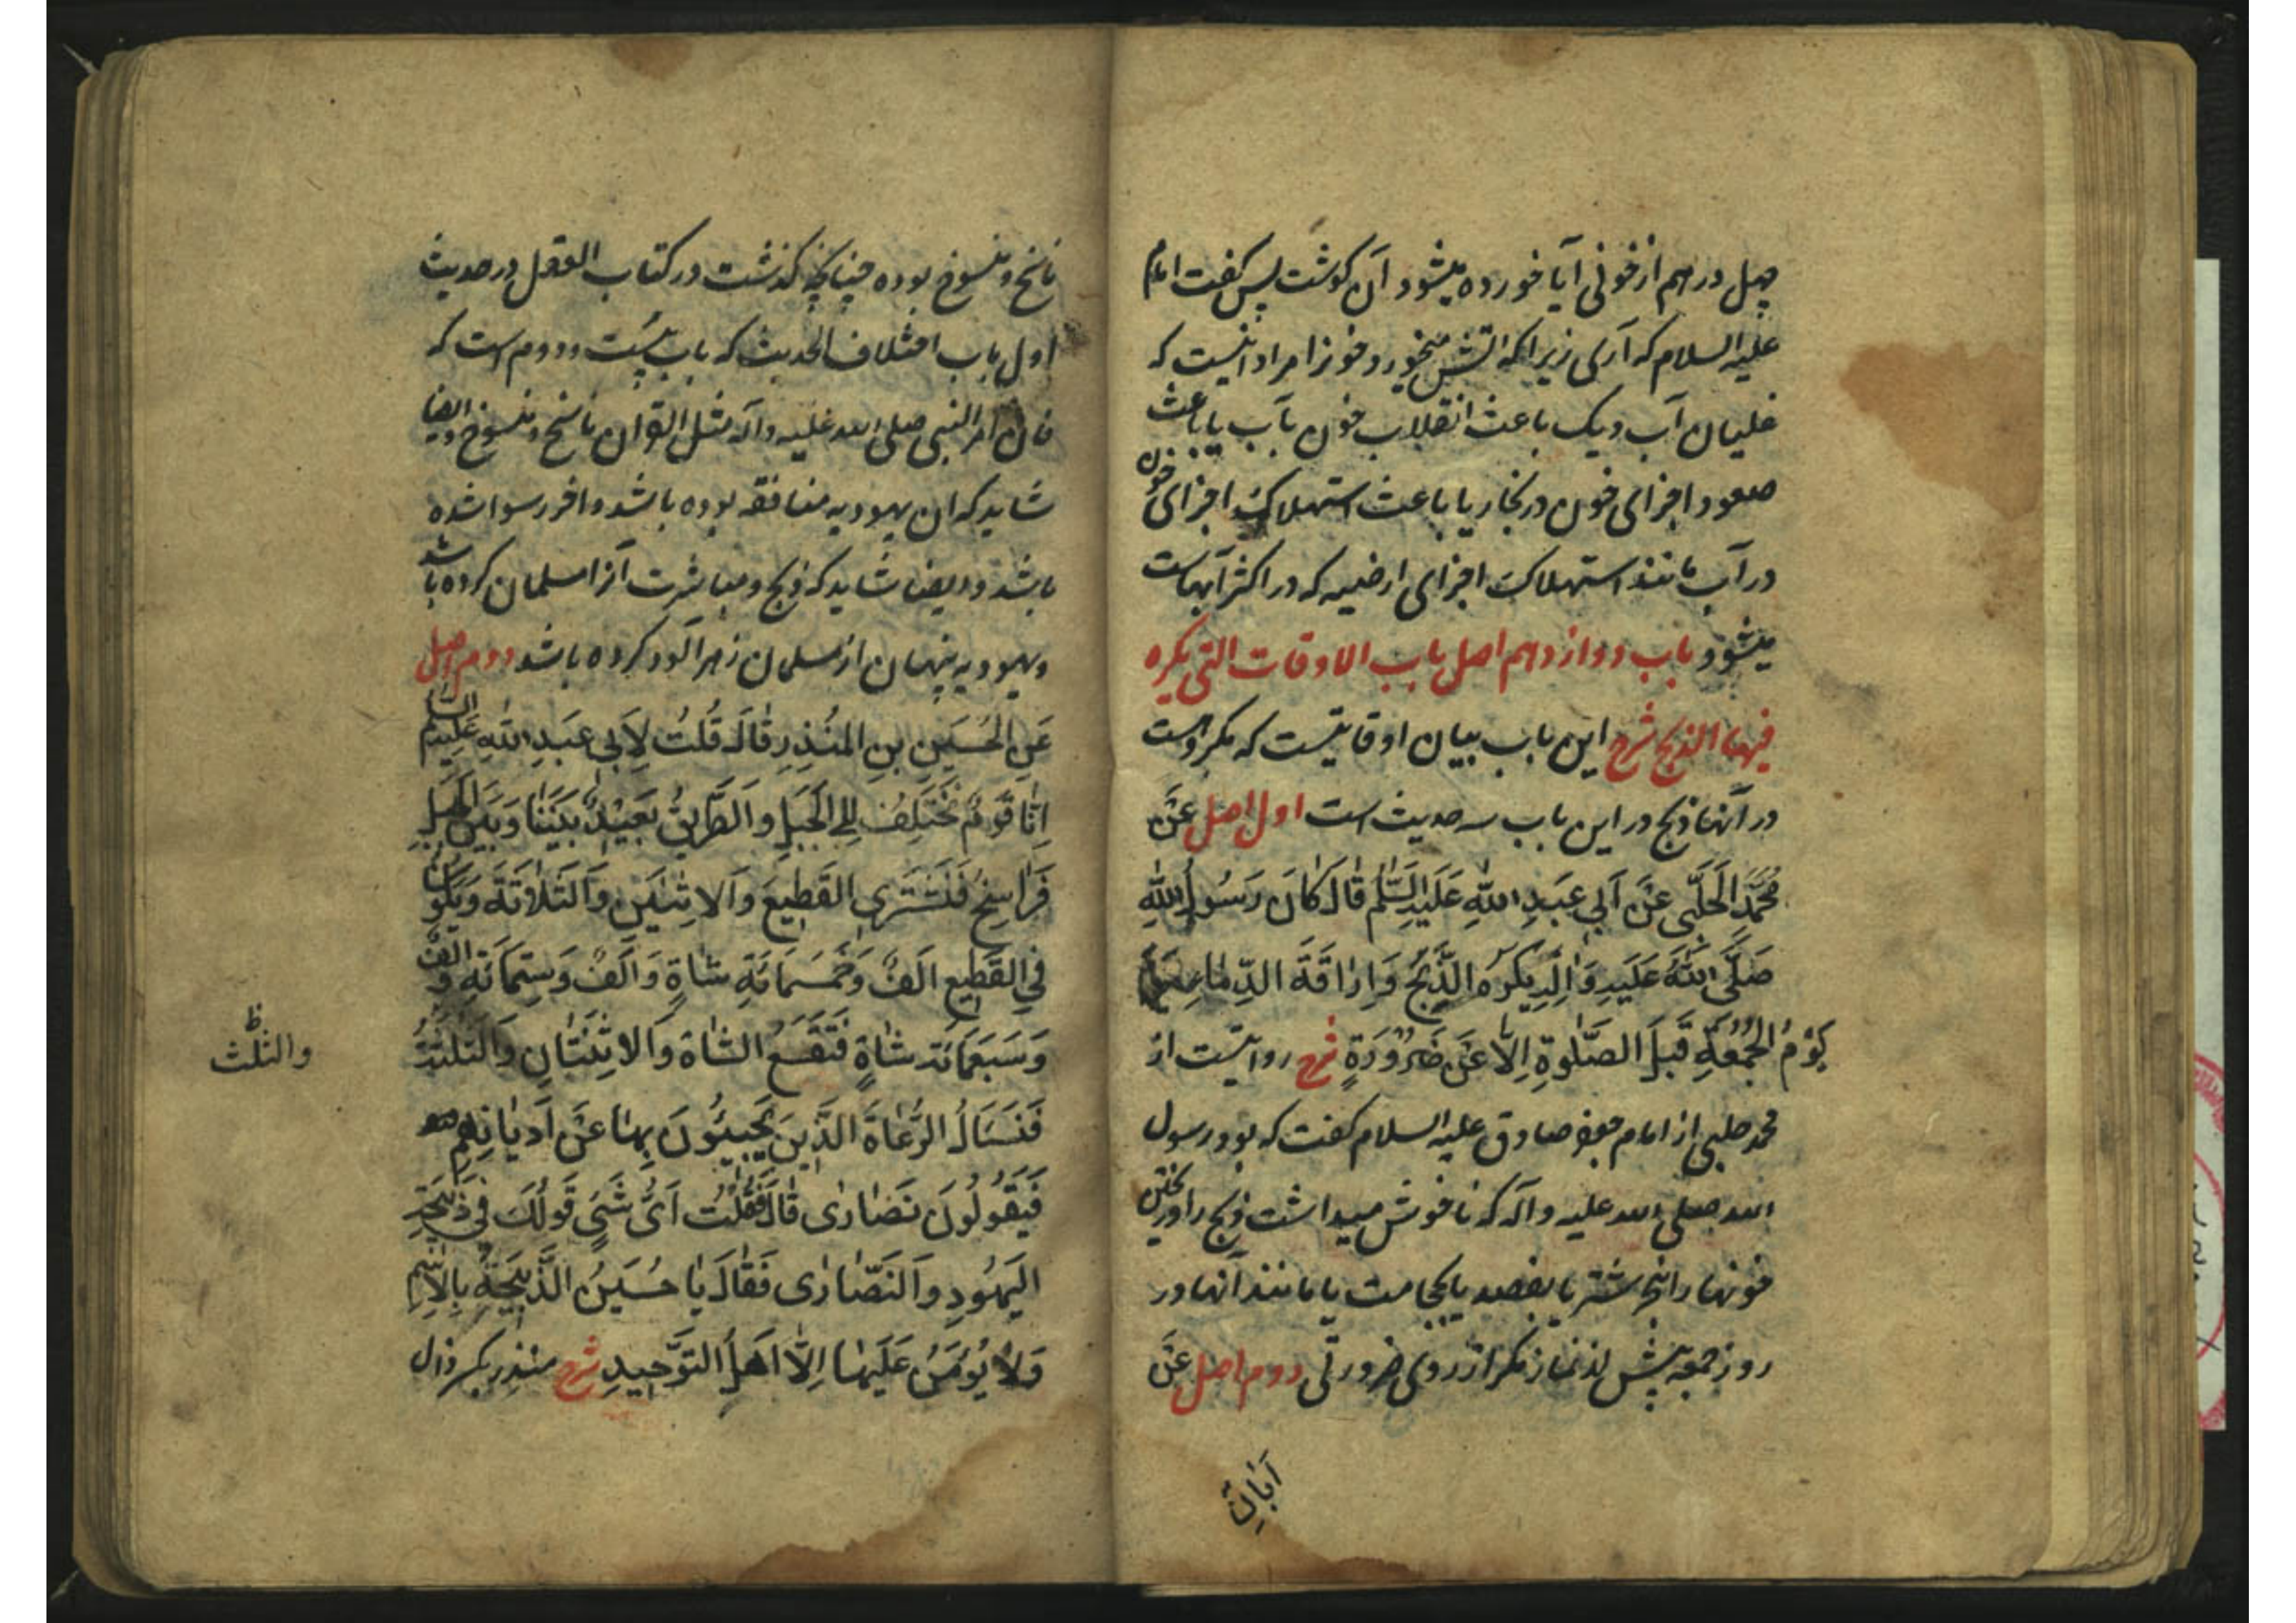 چهل درهم از خونی آیا خورده میشود آن کوشت پس کفت امام
علیه السلام که آری زیرا که آتش میخورد خونرا مراد اینست که
غلیان آب دیک باعث انقلاب خون بآب یا باعث
صعود اجزای خون در بخار یا باعث استهلاک اجزای خون
در آب مانند استهلاک اجزای ارضیه که در اکثر آبهاست
میشود باب دوازدهم اصل باب الاوقات التی یکره
فیها الذبح شرح این باب بیان اوقاتیست که مکروهست
در آنها ذبح در این باب سه حدیث است اول اصل عَنْ
مُحَمَّدٍ الْحَلَبِّی عَنْ اَبِی عَبْدِ اللّٰهِ عَلَیْهِ السَّلٰم قٰالَ کٰانَ رَسُولُ اللّٰهِ
صَلَّی اللّٰهُ عَلَیْهِ وَاٰلِهِ یَکْرَهُ الذَّبْحَ وَاِرٰاقَةَ الدِّمٰاءِ
یَوْمَ الْجُمُعَةِ قَبْلَ الصَّلٰوةِ اِلّٰا عَنْ ضَرُورَةٍ شرح روایتست از
محمد حلبی از امام جعفر صادق علیه السلام کفت که بود رسول
الله صلی الله علیه وآله که ناخوش میداشت ذبح را وریختن
خونها را بنحر شتر یا بفصد یا بحجامت یا مانند آنها در
روز جمعه پیش از نماز مکر از روی ضرورتی دوم اصل عَنْ
اَبٰانِ
ناسخ و منسوخ بوده چنانچه کذشت در کتاب العقل در حدیث
اول باب اختلاف الحدیث که باب بیست ودوم است که
فان امر النبی صلی الله علیه وآله مثل القرآن ناسخ و منسوخ وایضا
شاید که ان یهودیه منافقه بوده باشد واخر رسوا شده
باشد وایضا شاید که ذبح ومباشرت آنرا مسلمان کرده باشد
ویهودیه پنهان از مسلمان زهرآلود کرده باشد دوم اصل
عَنِ الْحُسَیْنِ بنِ المُنْذِرِ قٰالَ قُلْتُ لِاَبِی عَبْدِ اللّٰهِ عَلَیْهِ السَّلٰم
اِنّٰا قَوْمٌ نَخْتَلِفُ اِلَی الْجَبَلِ وَالطَّرِیقُ بَعِیْدٌ بَیْنَنٰا وَبَیْنَ الْجَبَلِ
فَرٰاسِخُ فَنَشْتَرِی القَطِیعَ وَالاِثْنَیْنِ وَالثَّلٰاثَةَ وَیَکُونُ
فِی القَطِیعِ اَلْفٌ وَخَمْسُمِائَةِ شٰاةٍ وَاَلْفٌ وَسِتُّمِائَةٍ وَاَلْفٌ
وَسَبْعُمِائَةِ شٰاةٍ فَتَقَعُ الشّٰاةُ وَالاِثْنَتٰانِ وَالثَّلٰثَةُ
والثلث ظ
فَنَسْاَلُ الرُّعٰاةَ الَّذِینَ یَجِیئُونَ بِهٰا عَنْ اَدْیٰانِهِمْ
فَیَقُولُونَ نَصٰارٰی قٰالَ فَقُلْتُ اَیُّ شَیْءٍ قَوْلُکَ فِی ذَبِیحَةِ
الیَهُودِ وَالنَّصٰارٰی فَقٰالَ یٰا حُسَیْنُ الذَّبِیْحَةُ بِالاِسْمِ
وَلٰا یُؤْمَنُ عَلَیْهٰا اِلّٰا اَهْلُ التَّوْحِیدِ شرح منذر بکسر ذال